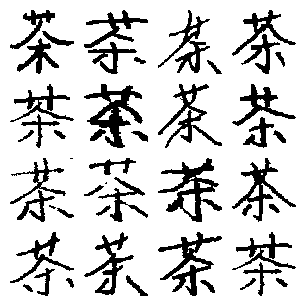 茶茶茶茶
茶茶茶茶
茶茶茶茶
茶茶茶茶